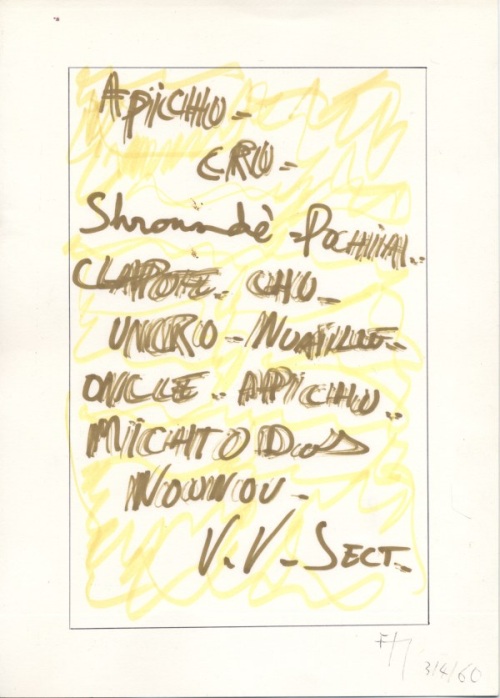 APICHU -
CRU -
Shromdè - POCHINAI..
CLAPOTE. CHU -
UNCRO - NUAILLE -
ONCLE .. APICHU ..
MICHTO DOS
NOUNOU -
V.V - SECT.
3/4/60